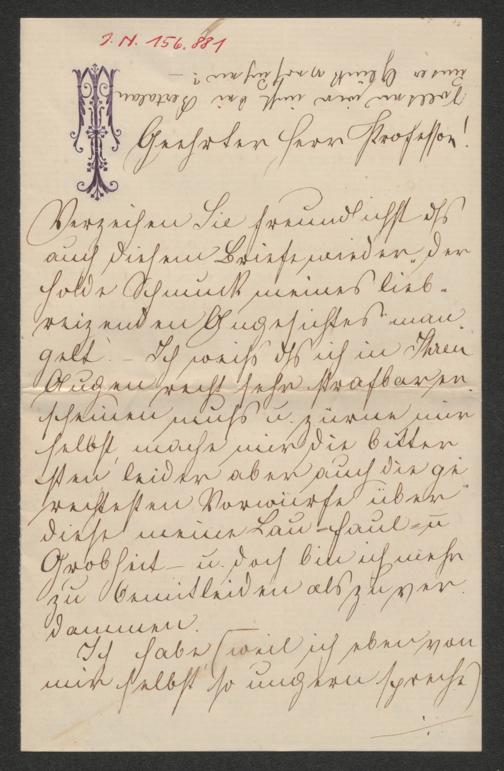 J. N. 156.881
Wollen wir nicht bei Bertalan
unser Glück versuchen? –
Geehrter Herr Professor!
Verzeihen Sie freundlichst dß
auch diesem Briefe wieder „der
holde Schmuck meines lieb-
reizenden Angesichtes“ man-
gelt. – Ich weiß dß ich in Ihren
Augen recht sehr strafbar er-
scheinen muß u. zürne mir
selbst, mache mir die bitter
sten leider aber auch die ge
rechtesten Vorwürfe über
diese meine Lau- Faul- u
Grobheit – u. doch bin ich mehr
zu bemitleiden als zu ver-
dammen.
Ich habe (weil ich eben von
mir selbst so ungern spreche)